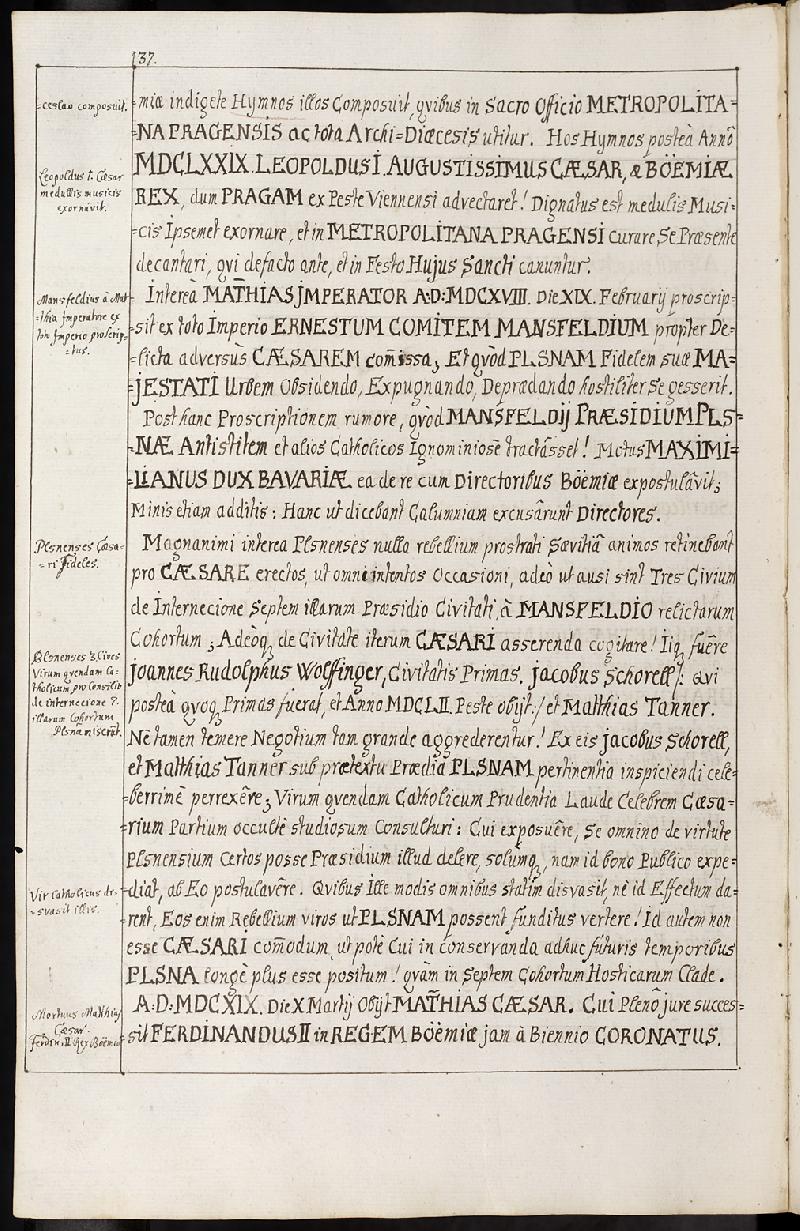 137.
=ceslao composuit.
mia indigete Hymnos illos Composuit, qvibus in Sacro Officio METROPOLITA=
=NA PRAGENSIS ac tota Archi=Diœcesis utitur. Hos Hymnos posteà Annô
Leopoldus I. Cæsar
medullis musicis
exornávit.
MDCLXXIX. LEOPOLDUS I. AUGUSTISSIMUS CÆSAR, & BÖËMIÆ
REX, dum PRAGAM ex Peste Viennensi advectaret! Dignatus est medulis Musi=
=cis Ipsemet exornare, et in METROPOLITANA PRAGENSI curare, Se Præsente
decantari, qvi defacto ante, et in Festo Hujus Sancti canuntur.
Mansfeldius à Mat=
=thia Imperatore ex
toto Imperio proscrip=
=tus.
Intereà MATHIAS IMPERATOR A:D:MDCXVIII. Die XIX. Februarij proscrip=
=sit ex toto Imperio ERNESTUM COMITEM MANSFELDIUM propter De=
=licta adversùs CÆSAREM com̃issa; Et qvòd PLSNAM Fidelem suæ MA=
=JESTATI Urbem Obsidendo, Expugnando, Deprædando hostiliter Se gesserit.
Post hanc Proscriptionem rumore, qvòd MANSFELDIJ PRÆSIDIUM PLS=
=NÆ Antistitem et alios Catholicos Ignominiosè tractâsset! Motus MAXIMI=
=LIANUS DUX BAVARIÆ ea de re cum Directoribus Böëmiæ expostulâvit;
Minis etiam additis: Hanc ut dicebant Calumniam excusârunt Directores.
Plsnenses Cæsa=
=ri Fideles.
Magnanimi interea Plsnenses nulla rebellium prostrati Sævitiâ animos retinebant
pro CÆSARE erectos, ut omni intentos Occasioni, adeò ut ausi sint Tres Civium
de Internecione Septem illarum Præsidio Civitati, à MANSFELDIO relictarum
Cohortum; Adeoq̃ de Civitate iterum CÆSARI asserenda cogitare! Iiq̃ fuêre
Plsnenses 3. Cives
Virum quendam Ca=
tholicum, pro Consilio
de internecione 7.
illarum Cohortum
Plsnam
Joannes Rudolphus Wolffinger, Civitatis Primas, Jacobus Schorell /: qvi
posteà qvoq̃ Primas fuerat, et Anno MDCLII. Peste obijt. / et Matthias Tanner.
Ne tamen temere Negotium tam grande aggrederentur! Ex eis Jacobus Schorell,
et Matthias Tanner sub prætextu Prædia PLSNAM pertinentia inspiciendi cele=
=berrimè perrexêre; Virum qvendam Catholicum Prudentia Laude Celebrem Cæsa=
=rium Partium occultè studiosum Consulturi: Cui exposuêre, Se omnino de virtute
Plsnensium Certos posse Præsidium illud delere, solumq̃, nam id bono Publico expe=
Vir Catholicus di=
=svasit illis.
=diat, ab Eo postulavêre. Qvibus Ille modis omnibus statim disvasit, nè id Effectum da=
=rent, Eos enim Rebellium viros ut PLSNAM possent funditus vertere! Id autem non
esse CÆSARI com̃odum, ut potè Cui in conservanda adhuc futuris temporibus
PLSNA longè plus esse positum! qvàm in Septem Cohortum Hosticarum Clade.
Mortuus Matthias
Cæsar.
Ferdin: II. Rex Böëmiæ
A:D:MDCXIX. Die X. Martij Obijt MATHIAS CÆSAR. Cui Plenô jure succes=
=sit FERDINANDUS II in REGEM BöëmiÆ jam à Biennio CORONATUS.